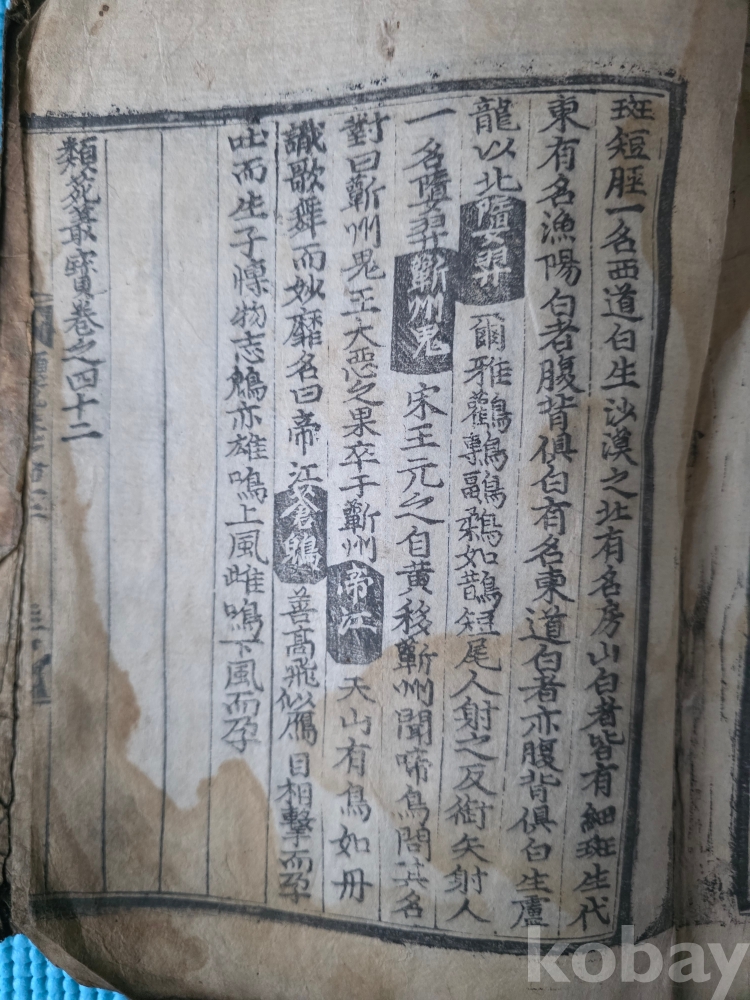 斑短脛一名西道白生沙漠之北有名房山白者皆有細斑生代
東有名漁陽白者腹背俱白有名東道白者亦腹背俱白生盧
龍以北 墮羿 爾雅鸛鷒鶝鶔如鵲短尾人射之反銜矢射人
一名墮羿 蘄州鬼 宋王元之自黃移蘄州聞啼鳥問其名
對曰蘄州鬼王大惡之果卒于蘄州 帝江 天山有鳥如丹
識歌舞而妙靡名曰帝江 蒼鴄 善高飛似鴈目相擊而孕
吐而生子博物志鵵亦雄鳴上風雌鳴下風而孕
類苑叢寶卷之四十二
kobay